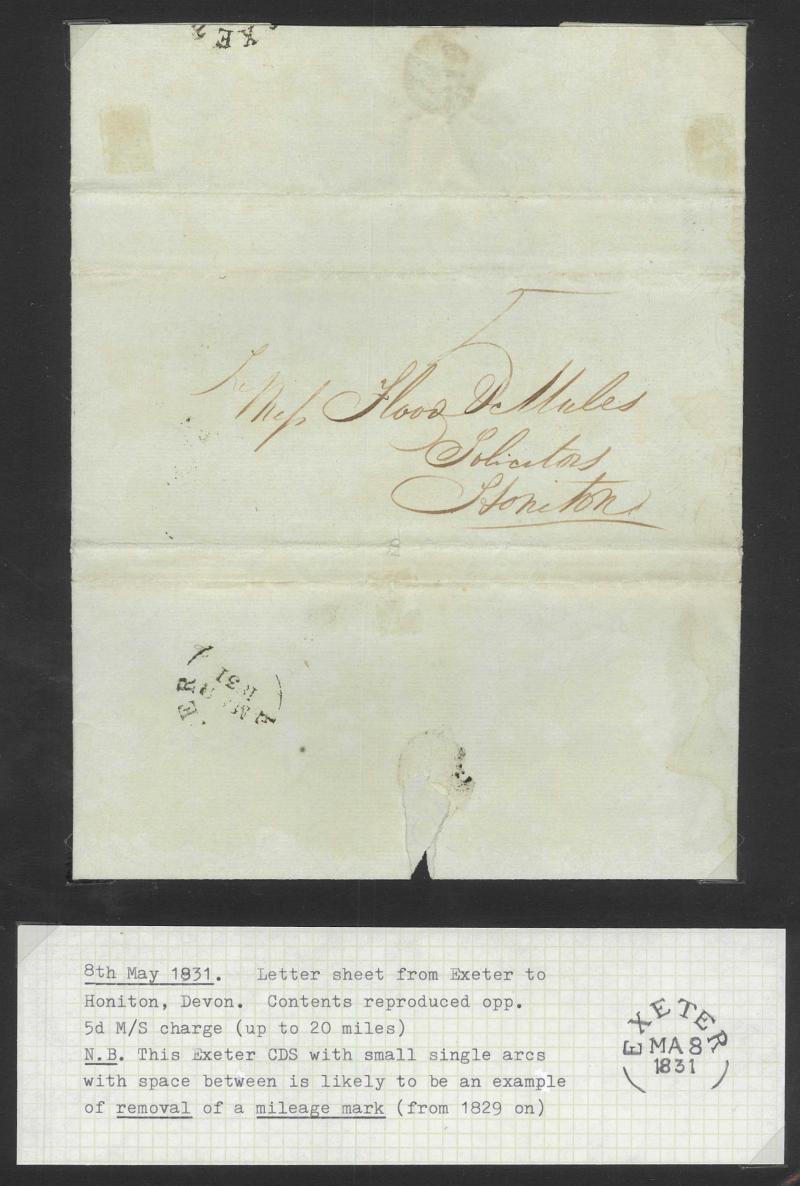 XE
5
Mess Flood & Mules
Solicitors
Honiton
ER
MA 8
1831
8th May 1831. Letter sheet from Exeter to
Honiton, Devon. Contents reproduced opp.
5d M/S charge (up to 20 miles)
N.B. This Exeter CDS with small single arcs
with space between is likely to be an example
of removal of a mileage mark (from 1829 on)
EXETER
MA 8
1831